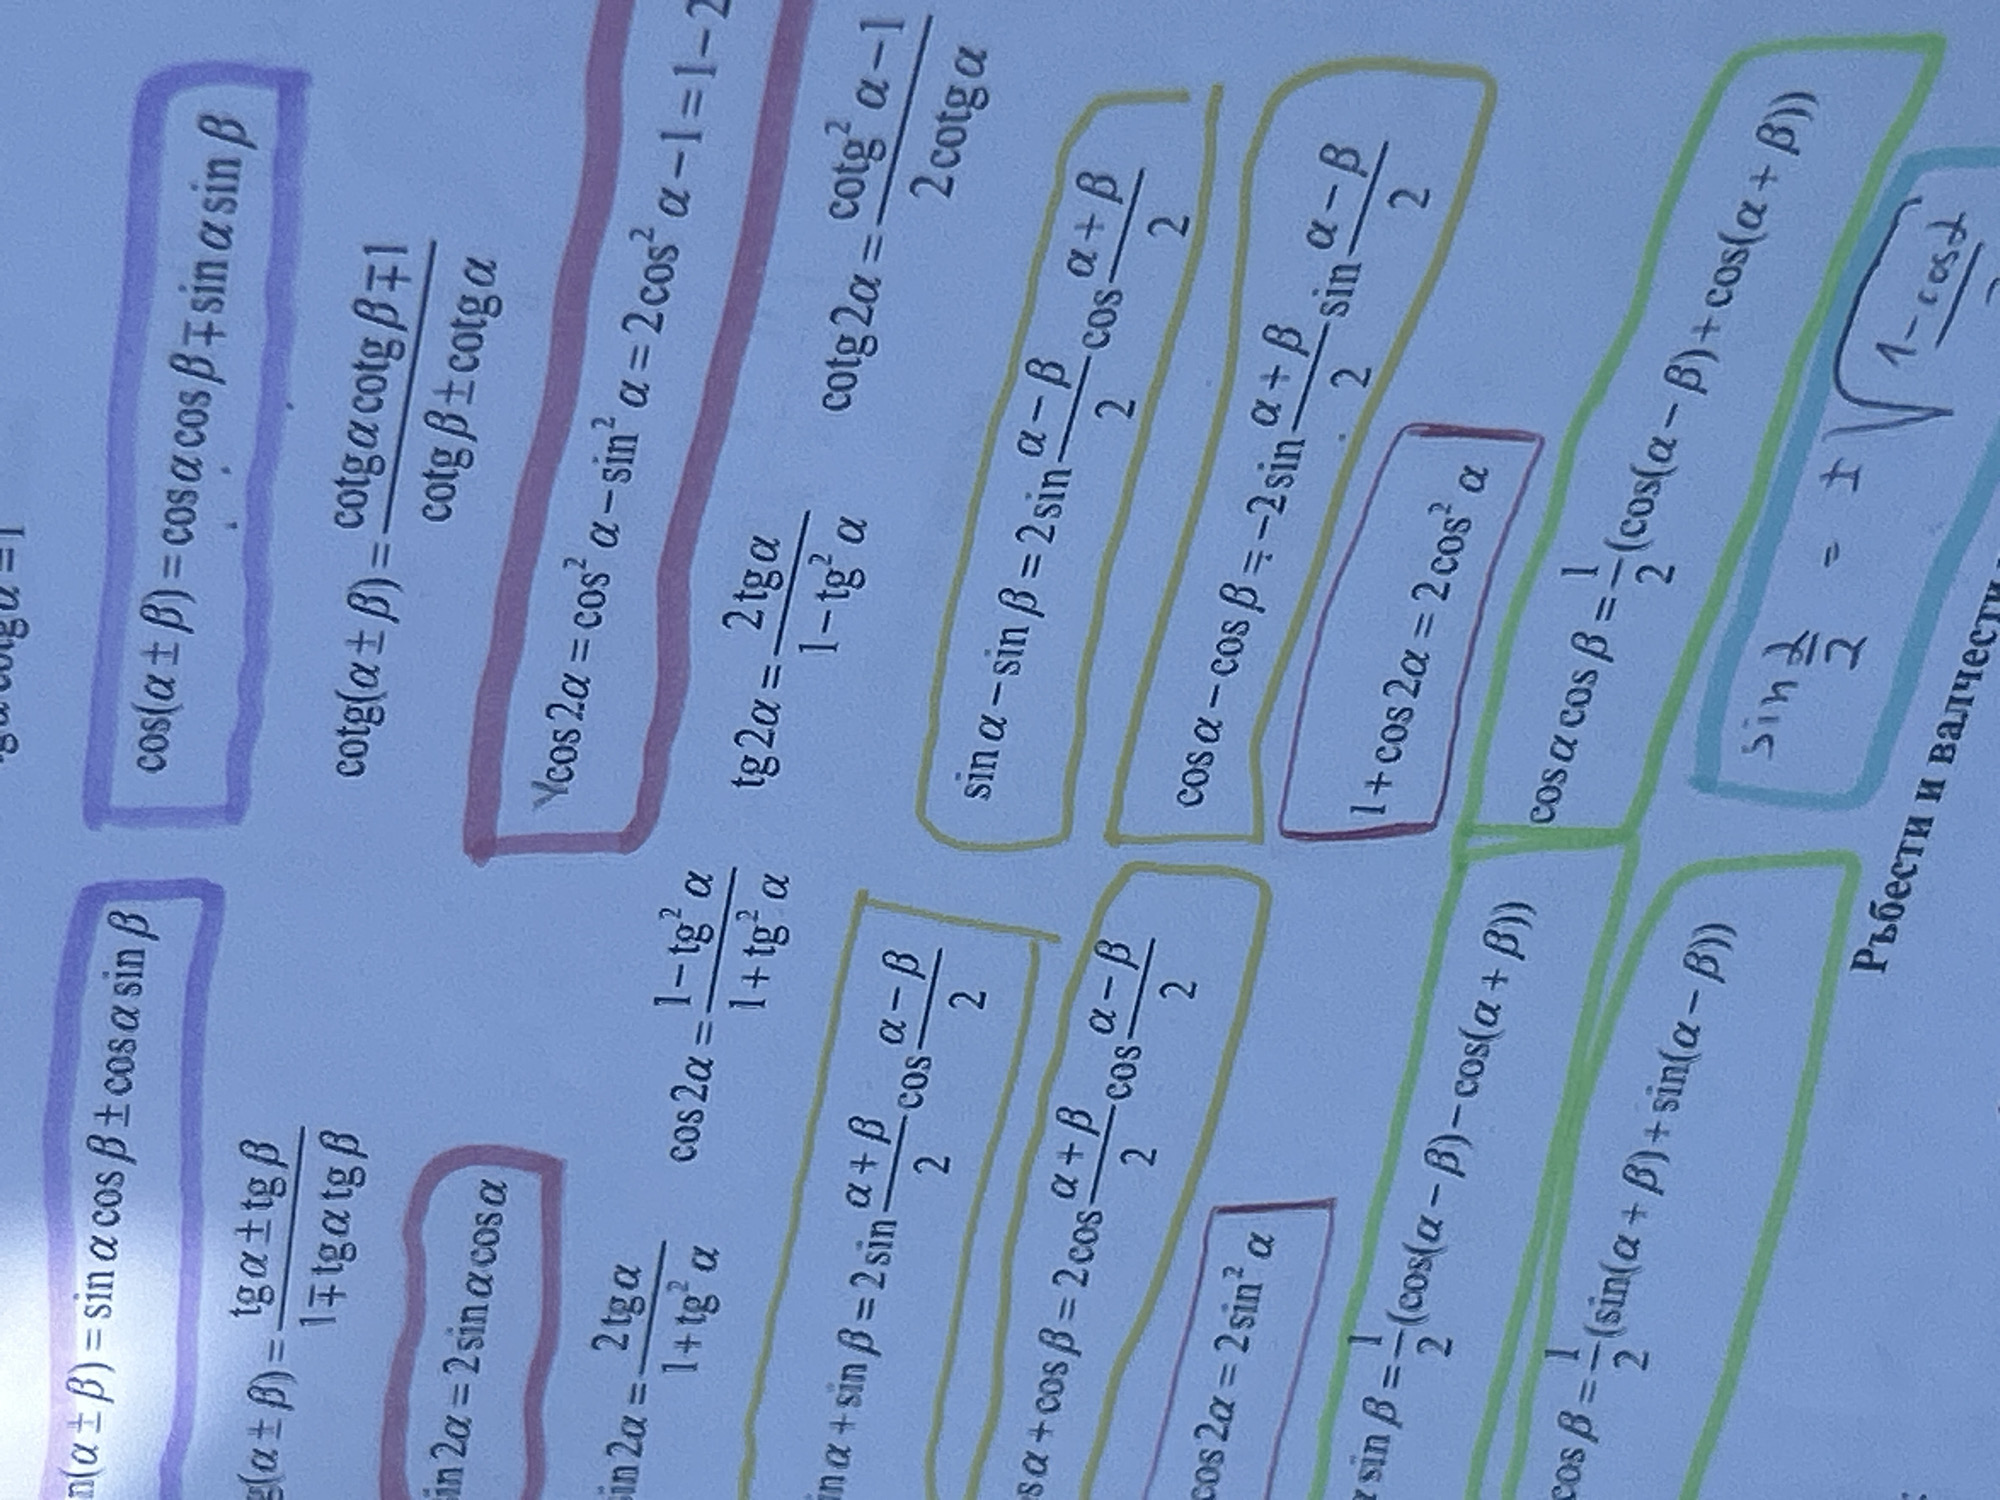 gα cotgα = 1
n(α ± β) = sin α cos β ± cos α sin β    cos(α ± β) = cos α cos β ∓ sin α sin β
g(α ± β) = (tg α ± tg β)/(1 ∓ tg α tg β)    cotg(α ± β) = (cotg α cotg β ∓ 1)/(cotg β ± cotg α)
in 2α = 2 sin α cos α    cos 2α = cos² α − sin² α = 2cos² α − 1 = 1 − 2
in 2α = 2 tg α/(1 + tg² α)    cos 2α = (1 − tg² α)/(1 + tg² α)    tg 2α = 2 tg α/(1 − tg² α)    cotg 2α = (cotg² α − 1)/(2 cotg α)
in α + sin β = 2 sin (α + β)/2 cos (α − β)/2    sin α − sin β = 2 sin (α − β)/2 cos (α + β)/2
s α + cos β = 2 cos (α + β)/2 cos (α − β)/2    cos α − cos β = −2 sin (α + β)/2 sin (α − β)/2
cos 2α = 2 sin² α    1 + cos 2α = 2 cos² α
sin β = 1/2 (cos(α − β) − cos(α + β))    cos α cos β = 1/2 (cos(α − β) + cos(α + β))
cos β = 1/2 (sin(α + β) + sin(α − β))    sin α/2 = ± √(1 − cos α
Ръбести и валчести